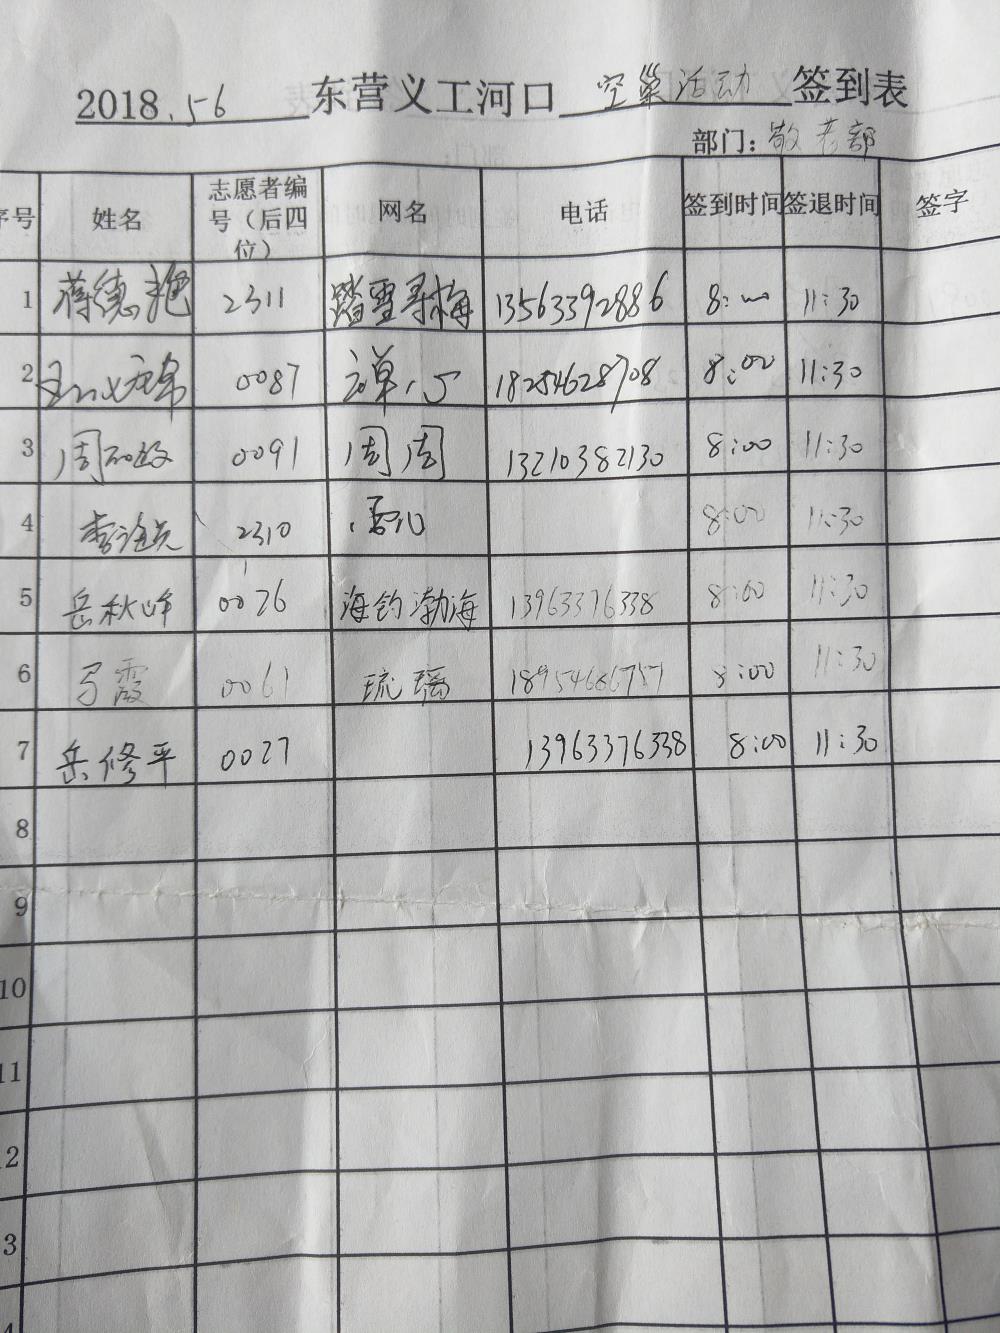 2018.5-6 东营义工河口 空巢活动 签到表
部门：敬老部
序号 姓名 志愿者编号（后四位） 网名 电话 签到时间 签退时间 签字
1 蒋德艳 2311 踏雪寻梅 13563392886 8:00 11:30
2 0087 禅心 18254628708 8:00 11:30
3 周 0091 周周 13210382130 8:00 11:30
4 李 2310 8:00 11:30
5 岳秋峰 0026 海钓渤海 13963376338 8:00 11:30
6 弓霞 0061 琉璃 8:00 11:30
7 岳修平 0027 13963376338 8:00 11:30
8
9
10
11
12
13